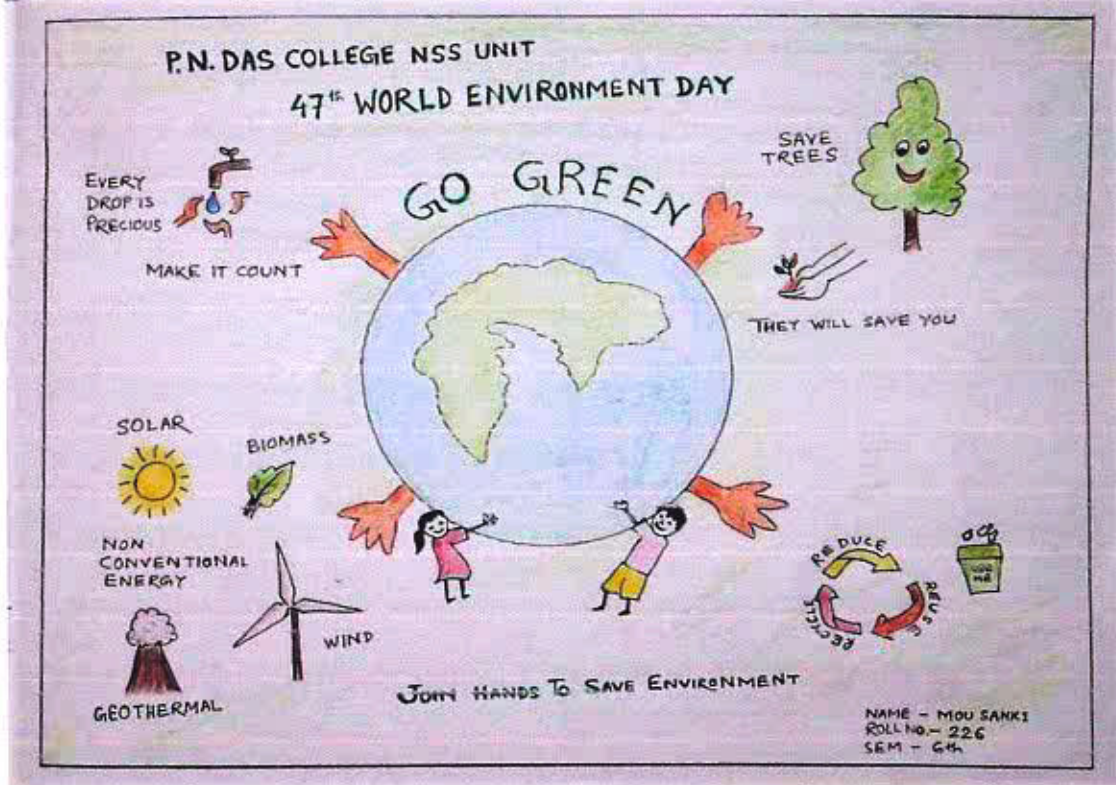 P.N. DAS COLLEGE NSS UNIT
47th WORLD ENVIRONMENT DAY
GO GREEN
EVERY
DROP IS
PRECIOUS
MAKE IT COUNT
SAVE
TREES
THEY WILL SAVE YOU
SOLAR
BIOMASS
NON
CONVENTIONAL
ENERGY
WIND
GEOTHERMAL
REDUCE
REUSE
RECYCLE
USE
ME
JOIN HANDS TO SAVE ENVIRONMENT
NAME - MOU SANKI
ROLL NO. - 226
SEM - 6th